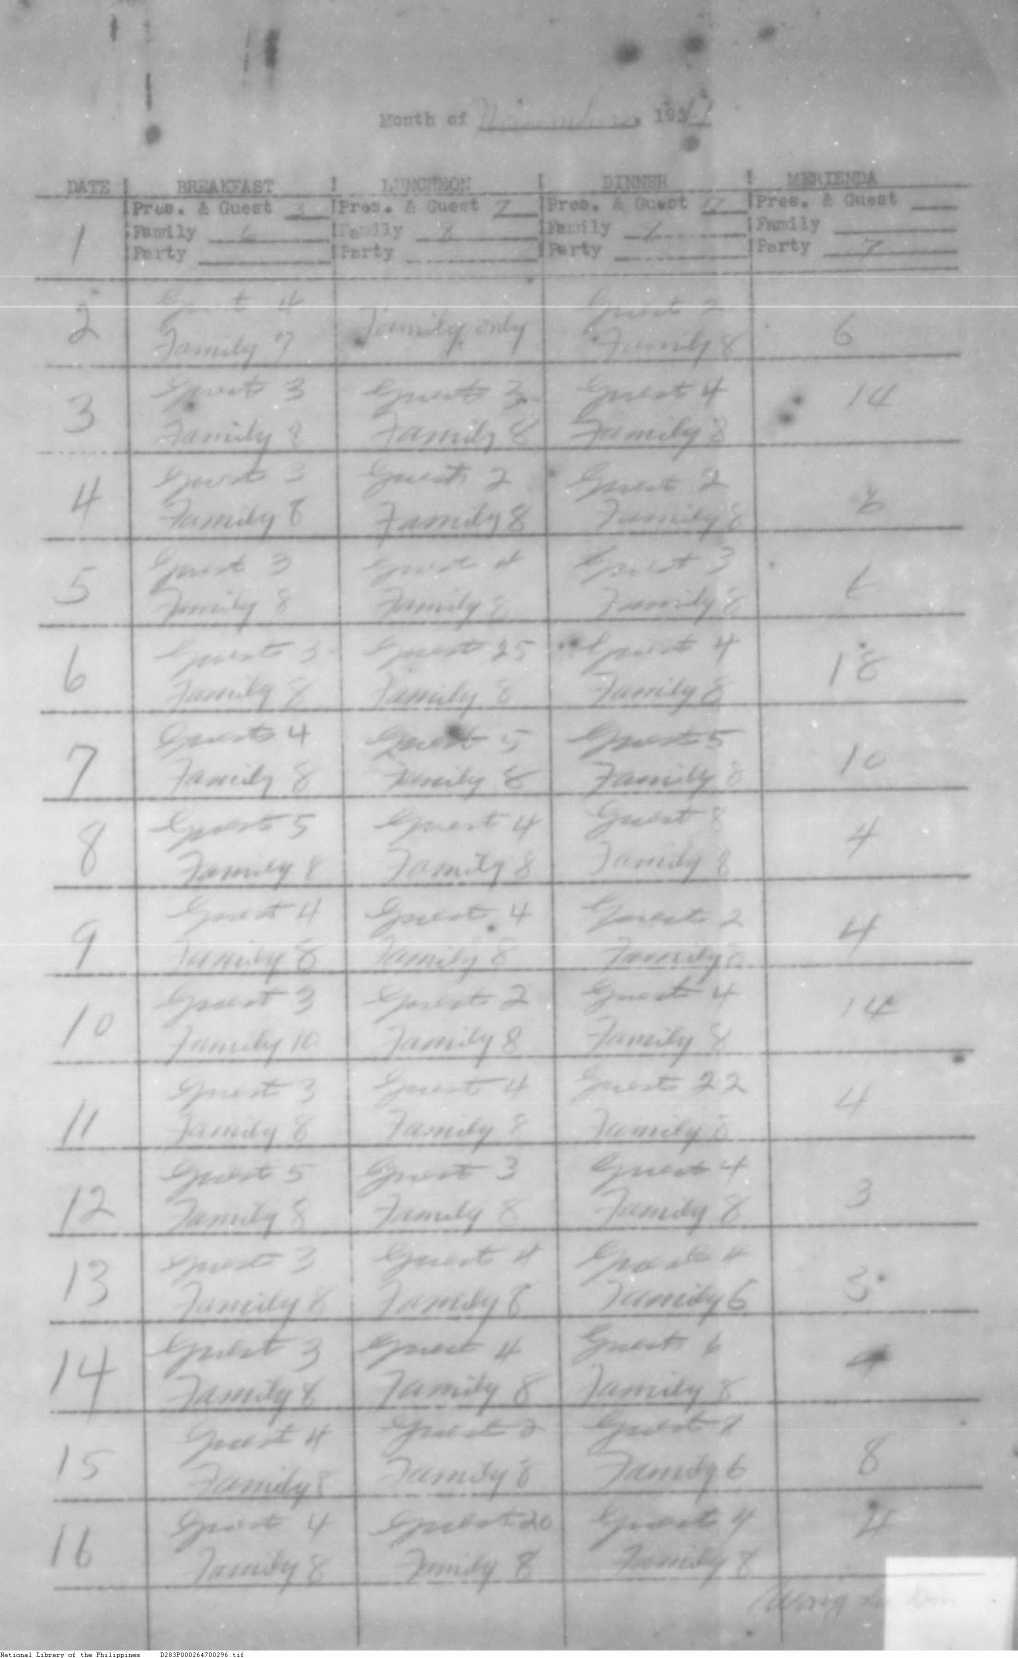 Month of November, 19
DATE ! BREAKFAST ! LUNCHEON ! DINNER ! MERIENDA
1
Pres. & Guest 3 !Pres. & Guest 7 !Pres. & Guest !Pres. & Guest
Family 6 !Family 8 !Family !Family
Party !Party !Party !Party 7
2
Guest 4 Guest 2
Family 7 Family only Family 8 6
3
Guest 3 Guest 3 Guest 4 14
Family 8 Family 8 Family 8
4
Guest 3 Guest 2 Guest 2
Family 8 Family 8 Family 8 6
5
Guest 3 Guest 4 Guest 3
Family 8 Family 8 Family 8
6
Guest 3 Guest 25 Guest 4 18
Family 8 Family 8 Family 8
7
Guest 4 Guest 5 Guest 5 10
Family 8 Family 8 Family 8
8
Guest 5 Guest 4 Guest 8 4
Family 8 Family 8 Family 8
9
Guest 4 Guest 4 Guest 2 4
Family 8 Family 8 Family 8
10
Guest 3 Guest 2 Guest 4 14
Family 10 Family 8 Family 8
11
Guest 3 Guest 4 Guest 22 4
Family 8 Family 8 Family 8
12
Guest 5 Guest 3 Guest 4 3
Family 8 Family 8 Family 8
13
Guest 3 Guest 4 Guest 4 3
Family 8 Family 8 Family 6
14
Guest 3 Guest 4 Guest 6
Family 8 Family 8 Family 8
15
Guest 4 Guest 2 Guest
Family 8 Family 8 Family 6 8
16
Guest 4 Guest 20 Guest 4 4
Family 8 Family 8 Family 8
National Library of the Philippines D283P000264700296.tif